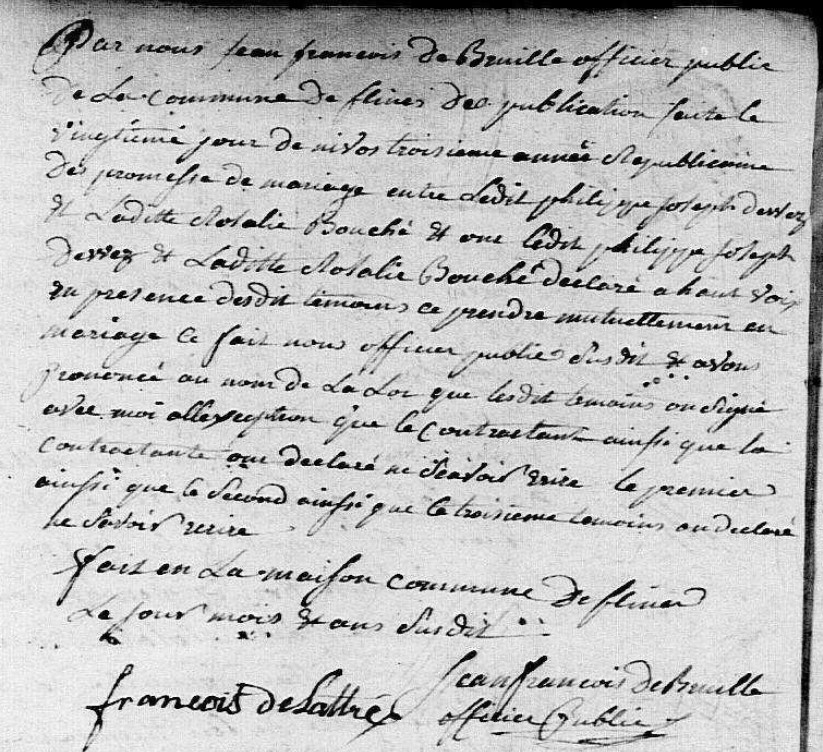 Par nous Jean francois De Bruille officier public
De La Commune De flines Des publication faite le
vingtieme jour De nivos troisieme année Republicaine
Des promesse de mariage entre Ledit philippe Joseph Dervez
Et Laditte Rosalie Bouché Et ont lédit philippe Joseph
Dervez Et Laditte Rosalie Bouché declaré a haut voix
En presence desdit temoins ce prendre mutuellement en
mariage Ce fait nous officier public Susdit Et avons
prononcé au nom de La Loi que lesdit temoins on Signé
avec moi allexception que le Contractant ainssi que la
Contractante ont declaré ne Scavoir ecrire le premier
ainssi que le Second ainssi que le troisieme temoins on declaré
ne Savoir ecrire
fait en La maison Commune De flines
Le Jour mois Et ans Susdit
francois deLattre Jean francois De Bruille
officier Public